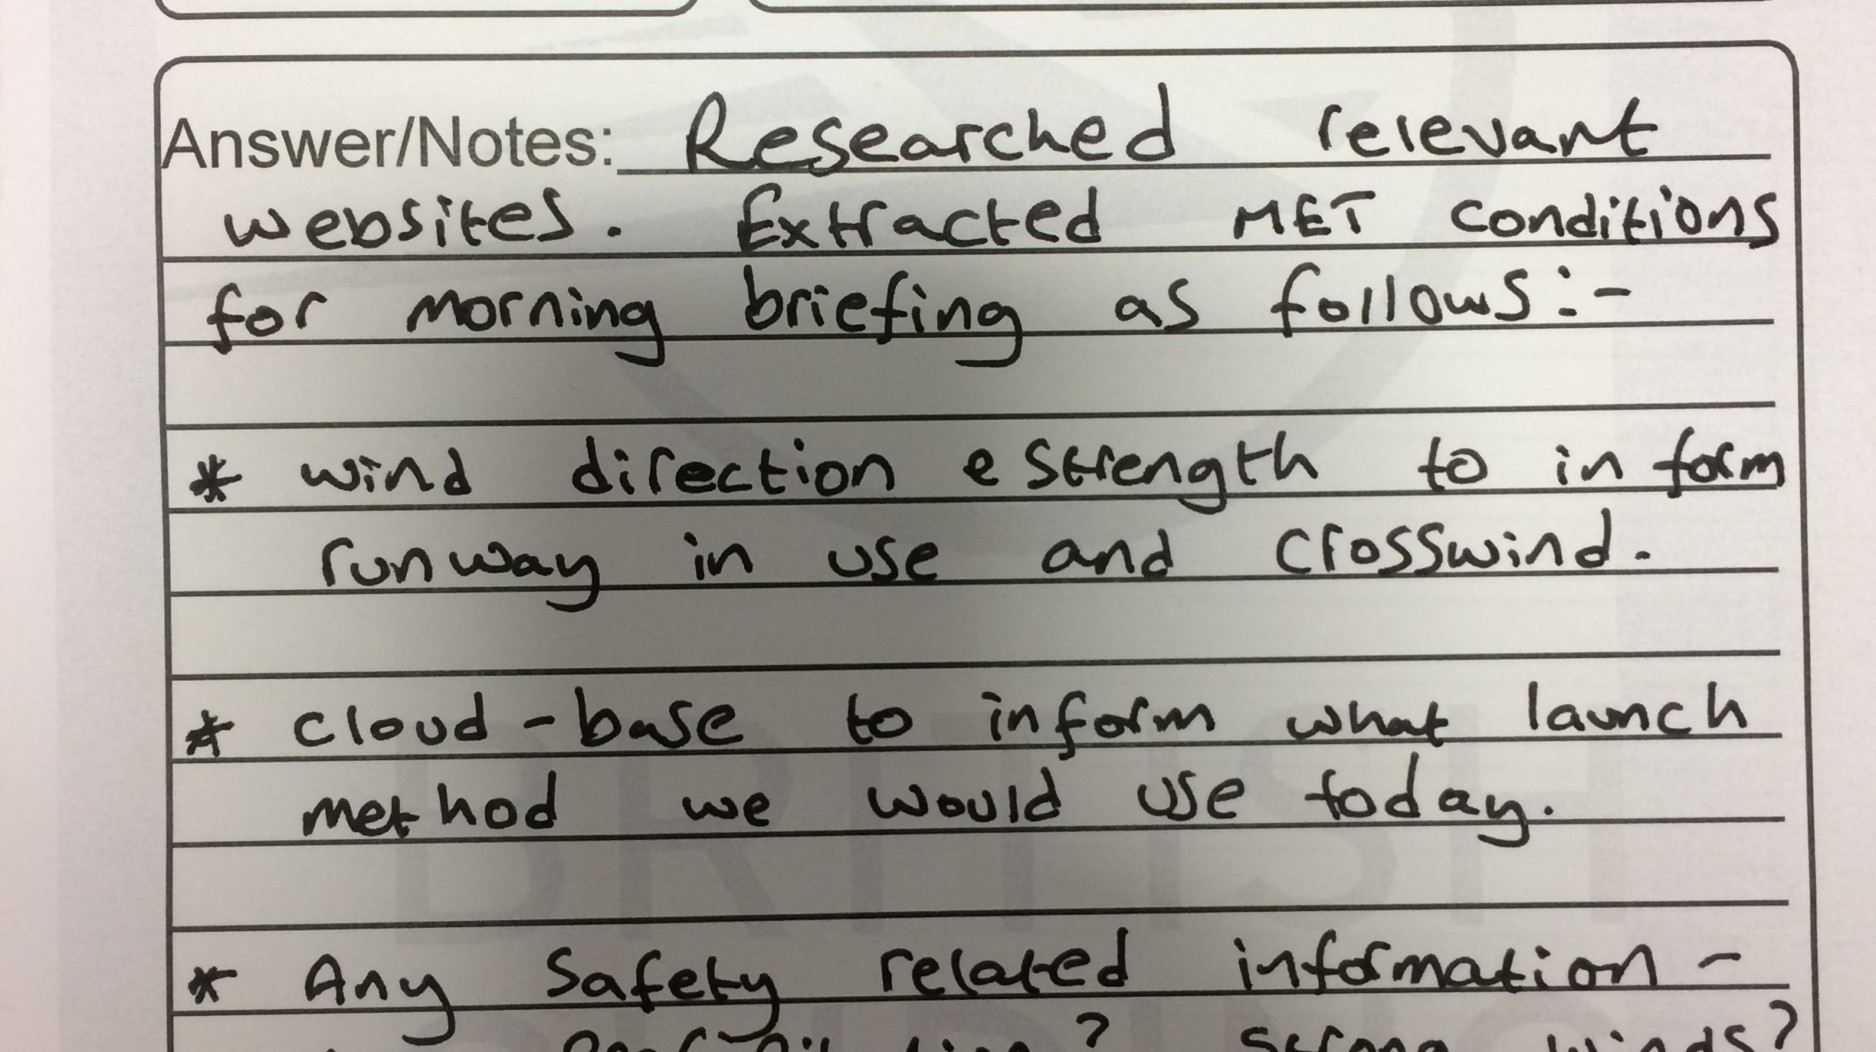 Answer/Notes: Researched relevant
websites. Extracted MET conditions
for morning briefing as follows:-
* wind direction e strength to inform
runway in use and crosswind.
* cloud-base to inform what launch
method we would use today.
* Any safety related information -
? strong winds?